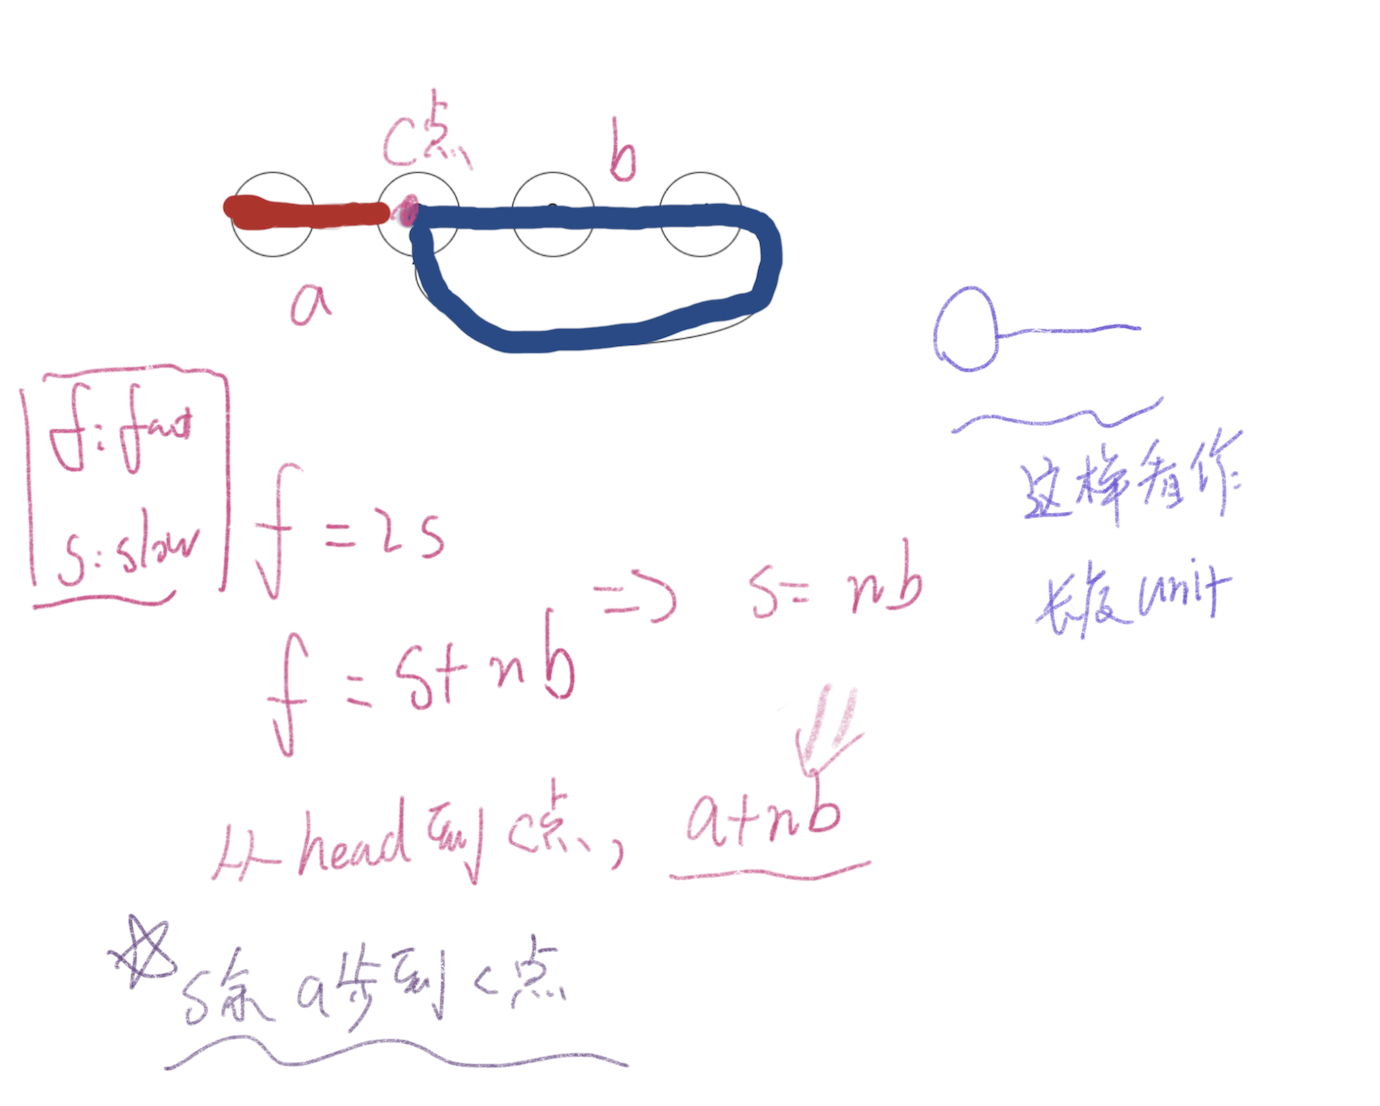 c点
b
a
f:fast
s:slow
f=2s
f=s+nb
=> s=nb
从head到c点, a+nb
s余a步到c点
这样看作:
长度unit